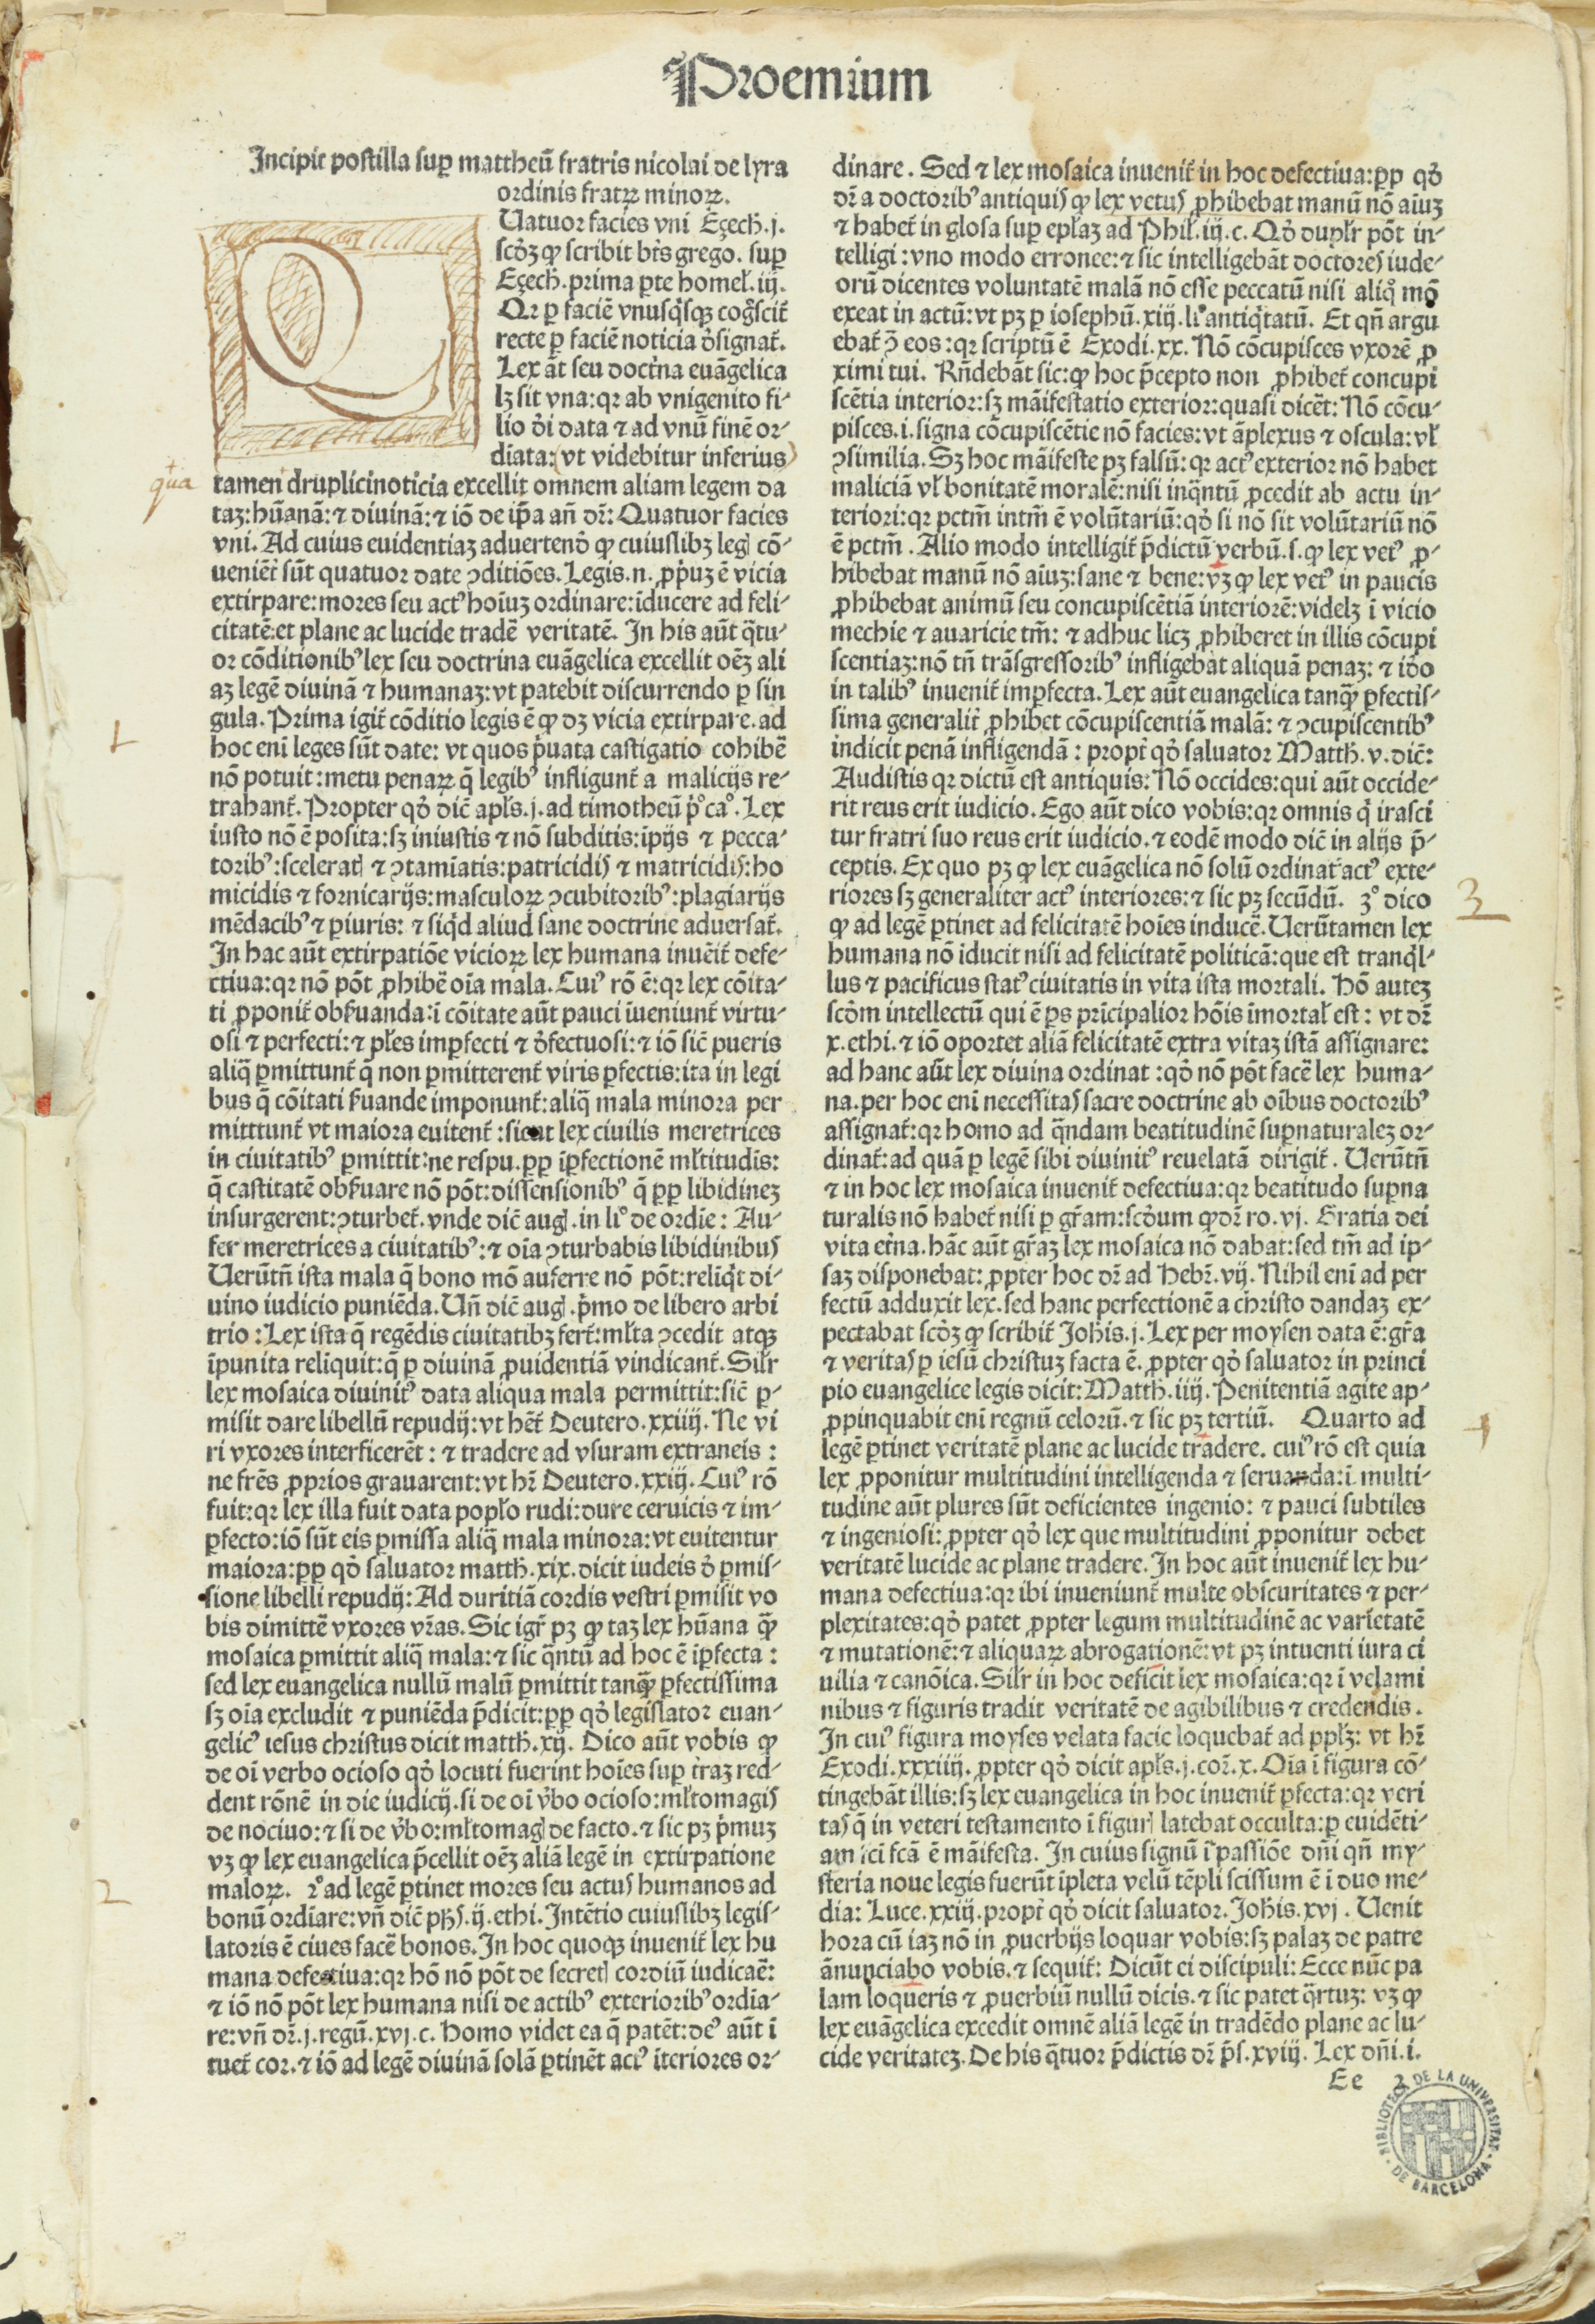 Proemium
Incipit postilla suꝑ mattheū fratris nicolai de lyra
ordinis fratrꝝ minoꝝ.
Uatuor facies vni Eçech̄.j.
scd̓ꝫ ꝙ scribit bt̄s grego. suꝑ
Eçech̄. prima ꝑte homel̄.iij.
Qꝛ ꝑ faciē vnusq̇sqꝫ cog̓scit̄
recte ꝑ faciē noticia d̓signat̄.
Lex āt seu doct̓na euāgelica
lꝫ sit vna: qꝛ ab vnigenito fi-
lio d̓i data ⁊ ad vnū finē or-
diata: vt videbitur inferius
qua
tamen druplicinoticia excellit omnem aliam legem da
taꝫ: hūanā: ⁊ diuinā: ⁊ iō de ip̄a an̄ dr̄: Quatuor facies
vni. Ad cuius euidentiaꝫ aduertend̓ ꝙ cuiuslibꝫ legꝭ cō-
ueniēt̄ sūt quatuor date ꝯditiōes. Legis.n. ꝓp̓uꝫ ē vicia
extirpare: mores seu actꝰ hoīuꝫ ordinare: īducere ad feli-
citatē: et plane ac lucide tradē veritatē. In his aūt q̄tu-
or cōditionibꝰ lex seu doctrina euāgelica excellit oēꝫ ali
aꝫ legē diuinā ⁊ humanaꝫ: vt patebit discurrendo ꝑ sin
gula. Prima igit̄ cōditio legis ē ꝙ dꝫ vicia extirpare. ad
1
hoc enī leges sūt date: vt quos p̓uata castigatio cohibē
nō potuit: metu penaꝝ q̄ legibꝰ infligunt̄ a malicijs re-
trahant̄. Propter qd̓ dic̄ apl̄s.j. ad timotheū p̓ºcaº. Lex
iusto nō ē posita: sꝫ iniustis ⁊ nō subditis: ipijs ⁊ pecca-
toribꝰ: sceleratꝭ ⁊ ꝯtamīatis: patricidis ⁊ matricidis: ho
micidis ⁊ fornicarijs: masculoꝝ ꝯcubitoribꝰ: plagiarijs
mēdacibꝰ ⁊ ꝑiuris: ⁊ siq̇d aliud sane doctrine aduersat̄.
In hac aūt extirpatiōe vicioꝝ lex humana inuēit̄ defe-
ctiua: qꝛ nō pōt ꝓhibē oīa mala. Cuiꝰ rō ē: qꝛ lex cōita-
ti ꝓponit̄ obẜuanda: ī cōitate aūt pauci īueniunt̄ virtu-
osi ⁊ perfecti: ⁊ pl̄es imꝑfecti ⁊ d̓fectuosi: ⁊ iō sic̄ pueris
aliq̄ ꝑmittunt̄ q̄ non ꝑmitterent̄ viris ꝑfectis: ita in legi
bus q̄ cōitati ẜuande imponunt̄: aliq̄ mala minora per
mitttunt̄ vt maiora euitent̄: sicut lex ciuilis meretrices
in ciuitatibꝰ ꝑmittit: ne respu. ꝑp īꝑfectionē ml̄titudīs:
q̄ castitatē obẜuare nō pōt: dissensionibꝰ q̄ ꝑp libidineꝫ
insurgerent: ꝯturbet̄. vnde dic̄ augꝭ. in liº de ordīe: Au-
fer meretrices a ciuitatibꝰ: ⁊ oīa ꝯturbabis libidinibus
Uerūtn̄ ista mala q̄ bono mō auferre nō pōt: relīq̇t di-
uino iudicio puniēda. Un̄ dic̄ augꝭ. p̓mo de libero arbi
trio: Lex ista q̄ regēdis ciuitatibꝫ fert̄: ml̄ta ꝯcedit atqꝫ
īpunita reliquit: q̄ ꝑ diuinā ꝓuidentiā vindicant̄. Sil̄r
lex mosaica diuinitꝰ data aliqua mala permittit: sic̄ ꝑ-
misit dare libellū repudij: vt hēt̄ Deutero.xxiiij. Ne vi
ri vxores interficerēt: ⁊ tradere ad vsuram extraneis:
ne frēs ꝓprios grauarent: vt hr̄ Deutero.xxiij. Cuiꝰ rō
fuit: qꝛ lex illa fuit data popl̄o rudi: dure ceruicis ⁊ im-
ꝑfecto: iō sūt eis ꝑmissa aliq̄ mala minora: vt euitentur
maiora: ꝑp qd̓ saluator matth̄.xix. dicit iudeis d̓ ꝑmis-
sione libelli repudij: Ad duritiā cordis vestri ꝑmisit vo
bis dimittē vxores vr̄as. Sic igr̄ pꝫ ꝙ taꝫ lex hūana q̄ꝫ
mosaica ꝑmittit aliq̄ mala: ⁊ sic q̄ntū ad hoc ē īꝑfecta:
sed lex euangelica nullū malū ꝑmittit tanq̄ꝫ ꝑfectissima
sꝫ oīa excludit ⁊ puniēda p̄dicit: ꝑp qd̓ legislator euan-
gelicꝰ iesus christus dicit matth̄.xij. Dico aūt vobis ꝙ
de oī verbo ocioso qd̓ locuti fuerint hoīes suꝑ t̓raꝫ red-
dent rōnē in die iudicij. si de oī v̓bo ocioso: ml̄tomagis
de nociuo: ⁊ si de v̓bo: ml̄tomagꝭ de facto. ⁊ sic pꝫ p̓muꝫ
vꝫ ꝙ lex euangelica p̄cellit oēꝫ aliā legē in extirpatione
2
maloꝝ. 2º ad legē ꝑtinet mores seu actus humanos ad
bonū ordīare: vn̄ dic̄ ph̄s.ij. ethi. Intētio cuiuslibꝫ legis-
latoris ē ciues facē bonos. In hoc quoqꝫ inuenit̄ lex hu
mana defectiua: qꝛ hō nō pōt de secretꝭ cordiū iudicaē:
⁊ iō nō pōt lex humana nisi de actibꝰ exterioribꝰ ordīa-
re: vn̄ dr̄.j. regū.xvj.c. Homo videt ea q̄ patēt: deꝰ aūt ī
tuet̄ cor. ⁊ iō ad legē diuinā solā ꝑtinēt actꝰ īteriores or-
dinare. Sed ⁊ lex mosaica inuenit̄ in hoc defectiua: ꝑp qd̓
dr̄ a doctoribꝰ antiquis ꝙ lex vetus ꝓhibebat manū nō aīuꝫ
⁊ habet̄ in glosa suꝑ epl̄aꝫ ad Phil̄.iij.c. Qd̓ dupl̄r pōt in-
telligi: vno modo erronee: ⁊ sic intelligebāt doctores iude-
orū dicentes voluntatē malā nō esse peccatū nisi aliq̊ mō
exeat in actū: vt pꝫ ꝑ iosephū.xij. liº antiq̇tatū. Et qn̄ argu
ebat̄ ꝯ eos: qꝛ scriptū ē Exodi.xx. Nō cōcupisces vxorē ꝓ
ximi tui. Rn̄debāt sic: ꝙ hoc p̄cepto non ꝓhibet̄ concupi
scētia interior: sꝫ māifestatio exterior: quasi dicēt: Nō cōcu-
pisces.i. signa cōcupiscētie nō facies: vt āplexus ⁊ oscula: vl̄
ꝯsimilia. Sꝫ hoc māifeste pꝫ falsū: qꝛ actꝰ exterior nō habet
maliciā vl̄ bonitatē moralē: nisi inq̄ntū ꝓcedit ab actu in-
teriori: qꝛ pctm̄ intm̄ ē volūtariū: qd̓ si nō sit volūtariū nō
ē pctm̄. Alio modo intelligit̄ p̄dictū verbū.s. ꝙ lex vetꝰ ꝓ-
hibebat manū nō aīuꝫ: sane ⁊ bene: vꝫ ꝙ lex vetꝰ in paucis
ꝓhibebat animū seu concupiscētiā interiorē: videlꝫ ī vicio
mechie ⁊ auaricie tm̄: ⁊ adhuc licꝫ ꝓhiberet in illis cōcupi
scentiaꝫ: nō tn̄ trāsgressoribꝰ infligebat aliquā penaꝫ: ⁊ iđo
in talibꝰ inuenit̄ imꝑfecta. Lex aūt euangelica tanq̄ꝫ ꝑfectis-
sima generalit̄ ꝓhibet cōcupiscentiā malā: ⁊ ꝯcupiscentibꝰ
indicit penā infligendā: propt̓ qd̓ saluator Matth̄.v. dic̄:
Audistis qꝛ dictū est antiquis: Nō occides: qui aūt occide-
rit reus erit iudicio. Ego aūt dico vobis: qꝛ omnis q̇ irasci
tur fratri suo reus erit iudicio. ⁊ eodē modo dic̄ in alijs p̄-
ceptis. Ex quo pꝫ ꝙ lex euāgelica nō solū ordinat̄ actꝰ exte-
riores sꝫ generaliter actꝰ interiores: ⁊ sic pꝫ secūdū. 3º dico
3
ꝙ ad legē ꝑtinet ad felicitatē hoīes inducē. Uerūtamen lex
humana nō īducit nisi ad felicitatē politicā: que est tranq̇l-
lus ⁊ pacificus statꝰ ciuitatis in vita ista mortali. Hō auteꝫ
scd̓m intellectū qui ē ꝑs prīcipalior hōis īmortal̄ est: vt dr̄
x. ethi. ⁊ iō oportet aliā felicitatē extra vitaꝫ istā assignare:
ad hanc aūt lex diuina ordinat: qd̓ nō pōt facē lex huma-
na. per hoc enī necessitas sacre doctrine ab oībus doctoribꝰ
assignat̄: qꝛ homo ad q̄ndam beatitudinē suꝑnaturaleꝫ or-
dinat̄: ad quā ꝑ legē sibi diuinitꝰ reuelatā dirigit̄. Uerūtn̄
⁊ in hoc lex mosaica inuenit̄ defectiua: qꝛ beatitudo suꝑna
turalis nō habet̄ nisi ꝑ gr̄am: scd̓um ꝙ dr̄ ro.vj. Gratia dei
vita et̓na. hāc aūt gr̄aꝫ lex mosaica nō dabat: sed tm̄ ad ip-
saꝫ disponebat: ꝓpter hoc dr̄ ad Hebr̄.vij. Nihil enī ad per
fectū adduxit lex. sed hanc perfectionē a christo dandaꝫ ex-
pectabat scd̓ꝫ ꝙ scribit̄ Joh̄is.j. Lex per moysen data ē: gr̄a
⁊ veritas ꝑ iesū christuꝫ facta ē. ꝓpter qd̓ saluator in princi
pio euangelice legis dicit: Matth̄.iiij. Penitentiā agite ap-
ꝓpinquabit enī regnū celorū. ⁊ sic pꝫ tertiū. Quarto ad
legē ꝑtinet veritatē plane ac lucide tradere. cuiꝰ rō est quia
lex ꝓponitur multitudini intelligenda ⁊ seruanda: ī multi-
tudine aūt plures sūt deficientes ingenio: ⁊ pauci subtiles
⁊ ingeniosi: ꝓpter qd̓ lex que multitudini ꝓponitur debet
veritatē lucide ac plane tradere. In hoc aūt inuenit̄ lex hu-
mana defectiua: qꝛ ibi inueniunt̄ multe obscuritates ⁊ per-
plexitates: qd̓ patet ꝓpter legum multitudinē ac varietatē
⁊ mutationē: ⁊ aliquaꝝ abrogationē: vt pꝫ intuenti iura ci
uilia ⁊ canōica. Sil̄r in hoc deficit lex mosaica: qꝛ ī velami
nibus ⁊ figuris tradit veritatē de agibilibus ⁊ credendis.
In cuiꝰ figura moyses velata facie loquebat̄ ad ppl̄ꝫ: vt hr̄
Exodi.xxxiiij. ꝓpter qd̓ dicit apl̄s.j. cor̄.x. Oīa ī figura cō-
tingebāt illis: sꝫ lex euangelica in hoc inuenit̄ ꝑfecta: qꝛ veri
tas q̄ in veteri testamento ī figurꝭ latebat occulta: ꝑ euidēti-
am fci fcā ē māifesta. In cuius signū ī passiōe dn̄i qn̄ my-
steria noue legis fuerūt īpleta velū tēpli scissum ē ī duo me-
dia: Luce.xxiij. propt̓ qd̓ dicit saluator. Joh̄is.xvj. Uenit
hora cū iaꝫ nō in ꝓuerbijs loquar vobis: sꝫ palaꝫ de patre
ānunciabo vobis. ⁊ sequit̄: Dicūt ei discipuli: Ecce nūc pa
lam loqueris ⁊ ꝓuerbiū nullū dicis. ⁊ sic patet q̄rtuꝫ: vꝫ ꝙ
lex euāgelica excedit omnē aliā legē in tradēdo plane ac lu-
cide veritateꝫ. De his q̄tuor p̄dictis dr̄ p̄s.xviij. Lex dn̄i.i.
Ee 2
BIBLIOTECA DE LA UNIVERSITAT DE BARCELONA